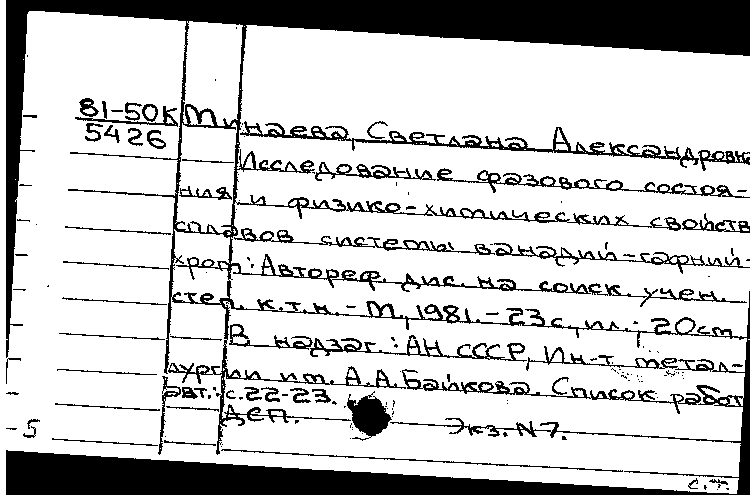 81-50К Минаева, Светлана Александровна
5426
Исследование фазового состоя-
ния и физико-химических свойств
сплавов системы ванадий-гафний-
хром: Автореф. дис. на соиск. учен.
степ. к.т.н. - М., 1981. - 23 с., ил.; 20 см.
В надзаг.: АН СССР, Ин-т метал-
лургии им. А.А. Байкова. Список работ
авт.: с. 22-23.
ДСП. Экз. N 7.
5
с.т.